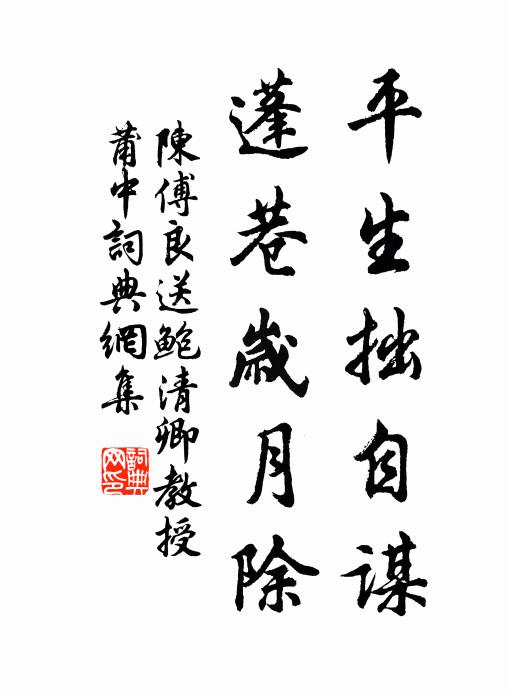 平生拙自謀
蓬巷歲月除
陳傅良送鮑清卿教授
莆中詞典網集
詞典网印